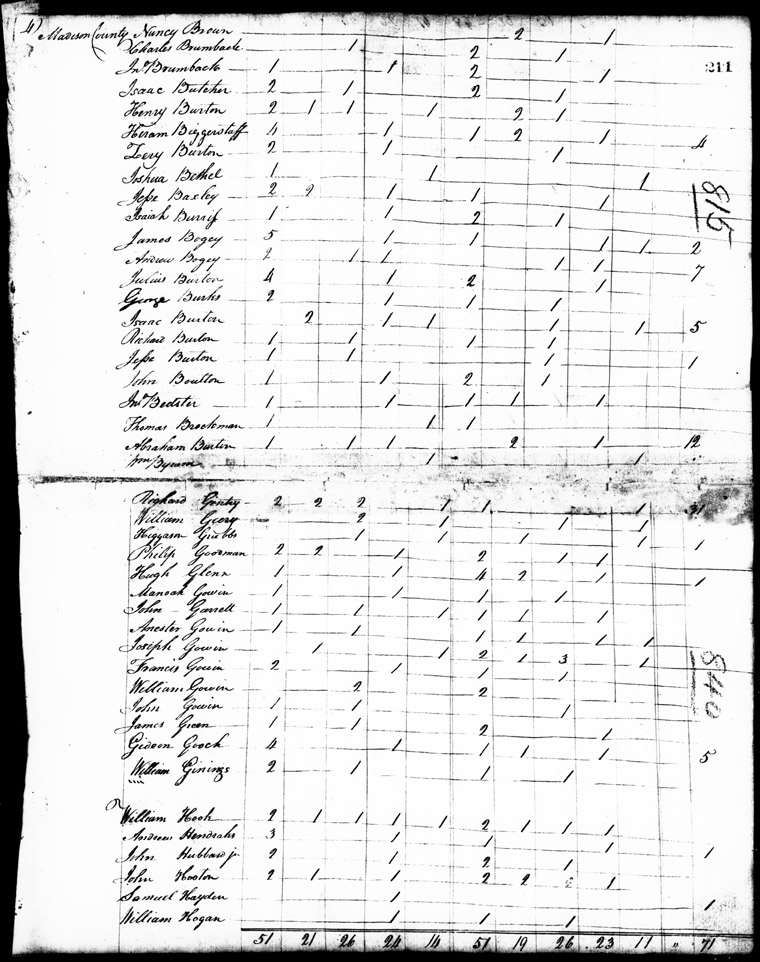 4) Madison County Nancy Brown 2 1
Charles Brumback 1 2 1
Jno Brumback 1 1 2 1 211
Isaac Butcher 2 1 2 1
Henry Burton 2 1 1 1 2 1
Hiram Biggerstaff 4 1 1 2 1 4
Burton 2 1 1
Joshua Bethel 1 1 1
Jesse Baxley 2 2 1 1 1
Isaiah 1 1 2 1
815
James Bogey 5 1 1 1 1 2
Andrew Bogey 2 1 1 1 1 7
Julius Burton 4 1 2 1
George Burks 2 1 1 1
Isaac Burton 2 1 1 1 1 5
Richard Burton 1 1 1 1
Jesse Burton 1 1 1 1
John Boulton 1 1 2 1
Jno 1 1 1 1 1
Thomas Brockman 1 1 1
Abraham Burton 1 1 1 2 1 12
Wm Byram 1 1
Richard Gentry 2 2 2 1 1 1
William 2 1 1 1
Higgason Grubbs 1 1 1 1 1
Philip Goodman 2 2 1 2 1 1
Hugh Glenn 1 1 4 2 1 1
Manoah Gowin 1 1 1 1
John Garrett 1 1 1 1 1 1
Ancster Gowin 1 1 1 1 1 1
Joseph Gowin 1 1 2 1 3 1
Francis Gowin 2 1 1 1
840
William Gowin 2 2
John Gowin 1 1 1
James Green 1 1 2 1
Gideon Gooch 4 1 1 1 1 5
William Ginings 2 1 1 1
William Hook 2 1 1 1 1 2 1 1 1
Andrew Hendrahs 3 1 1 1
John Hubbard jr 2 1 2 1 1
John Hooton 2 1 1 2 2 2 1
Samuel Hayden 1 1
William Hogan 1 1 1
51 21 26 24 14 51 19 26 23 11 " 71